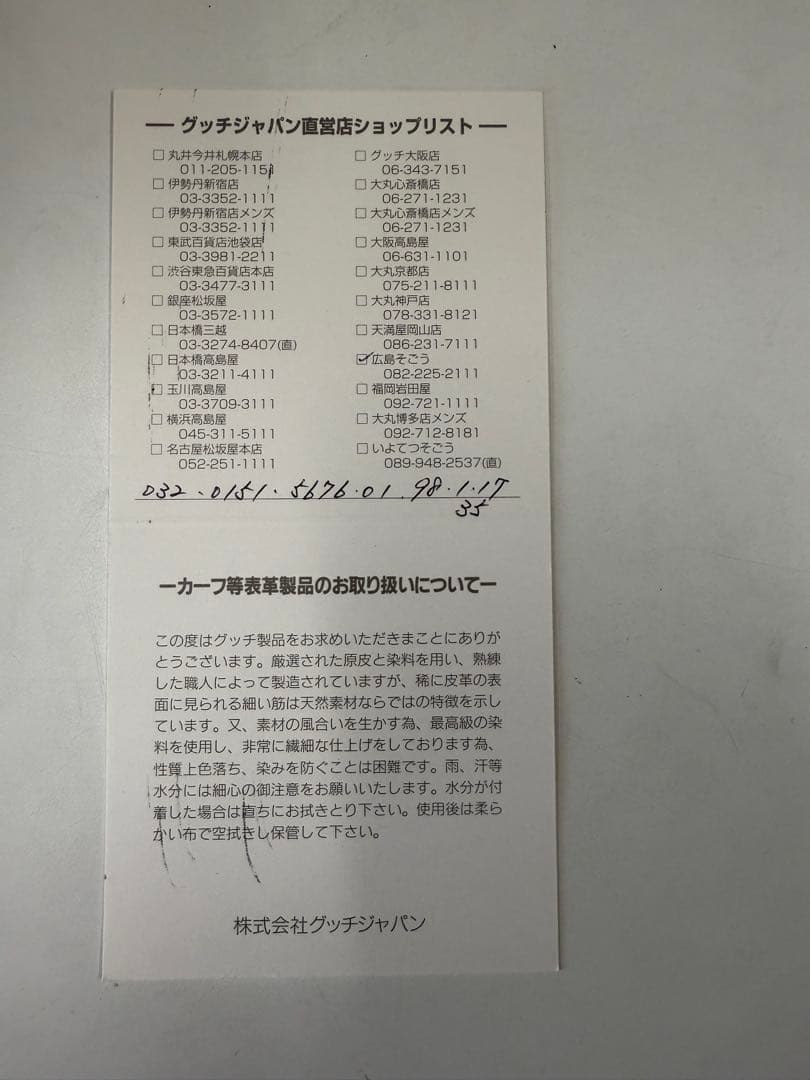 ― グッチジャパン直営店ショップリスト ―
□ 丸井今井札幌本店
011-205-1151
□ 伊勢丹新宿店
03-3352-1111
□ 伊勢丹新宿店メンズ
03-3352-1111
□ 東武百貨店池袋店
03-3981-2211
□ 渋谷東急百貨店本店
03-3477-3111
□ 銀座松坂屋
03-3572-1111
□ 日本橋三越
03-3274-8407(直)
□ 日本橋高島屋
03-3211-4111
□ 玉川高島屋
03-3709-3111
□ 横浜高島屋
045-311-5111
□ 名古屋松坂屋本店
052-251-1111
□ グッチ大阪店
06-343-7151
□ 大丸心斎橋店
06-271-1231
□ 大丸心斎橋店メンズ
06-271-1231
□ 大阪高島屋
06-631-1101
□ 大丸京都店
075-211-8111
□ 大丸神戸店
078-331-8121
□ 天満屋岡山店
086-231-7111
☑ 広島そごう
082-225-2111
□ 福岡岩田屋
092-721-1111
□ 大丸博多店メンズ
092-712-8181
□ いよてつそごう
089-948-2537(直)
032.0151.5676.01.98.1.17
35
―カーフ等表革製品のお取り扱いについて―
この度はグッチ製品をお求めいただきまことにありが
とうございます。厳選された原皮と染料を用い、熟練
した職人によって製造されていますが、稀に皮革の表
面に見られる細い筋は天然素材ならではの特徴を示し
ています。又、素材の風合いを生かす為、最高級の染
料を使用し、非常に繊細な仕上げをしております為、
性質上色落ち、染みを防ぐことは困難です。雨、汗等
水分には細心の御注意をお願いいたします。水分が付
着した場合は直ちにお拭きとり下さい。使用後は柔ら
かい布で空拭きし保管して下さい。
株式会社グッチジャパン